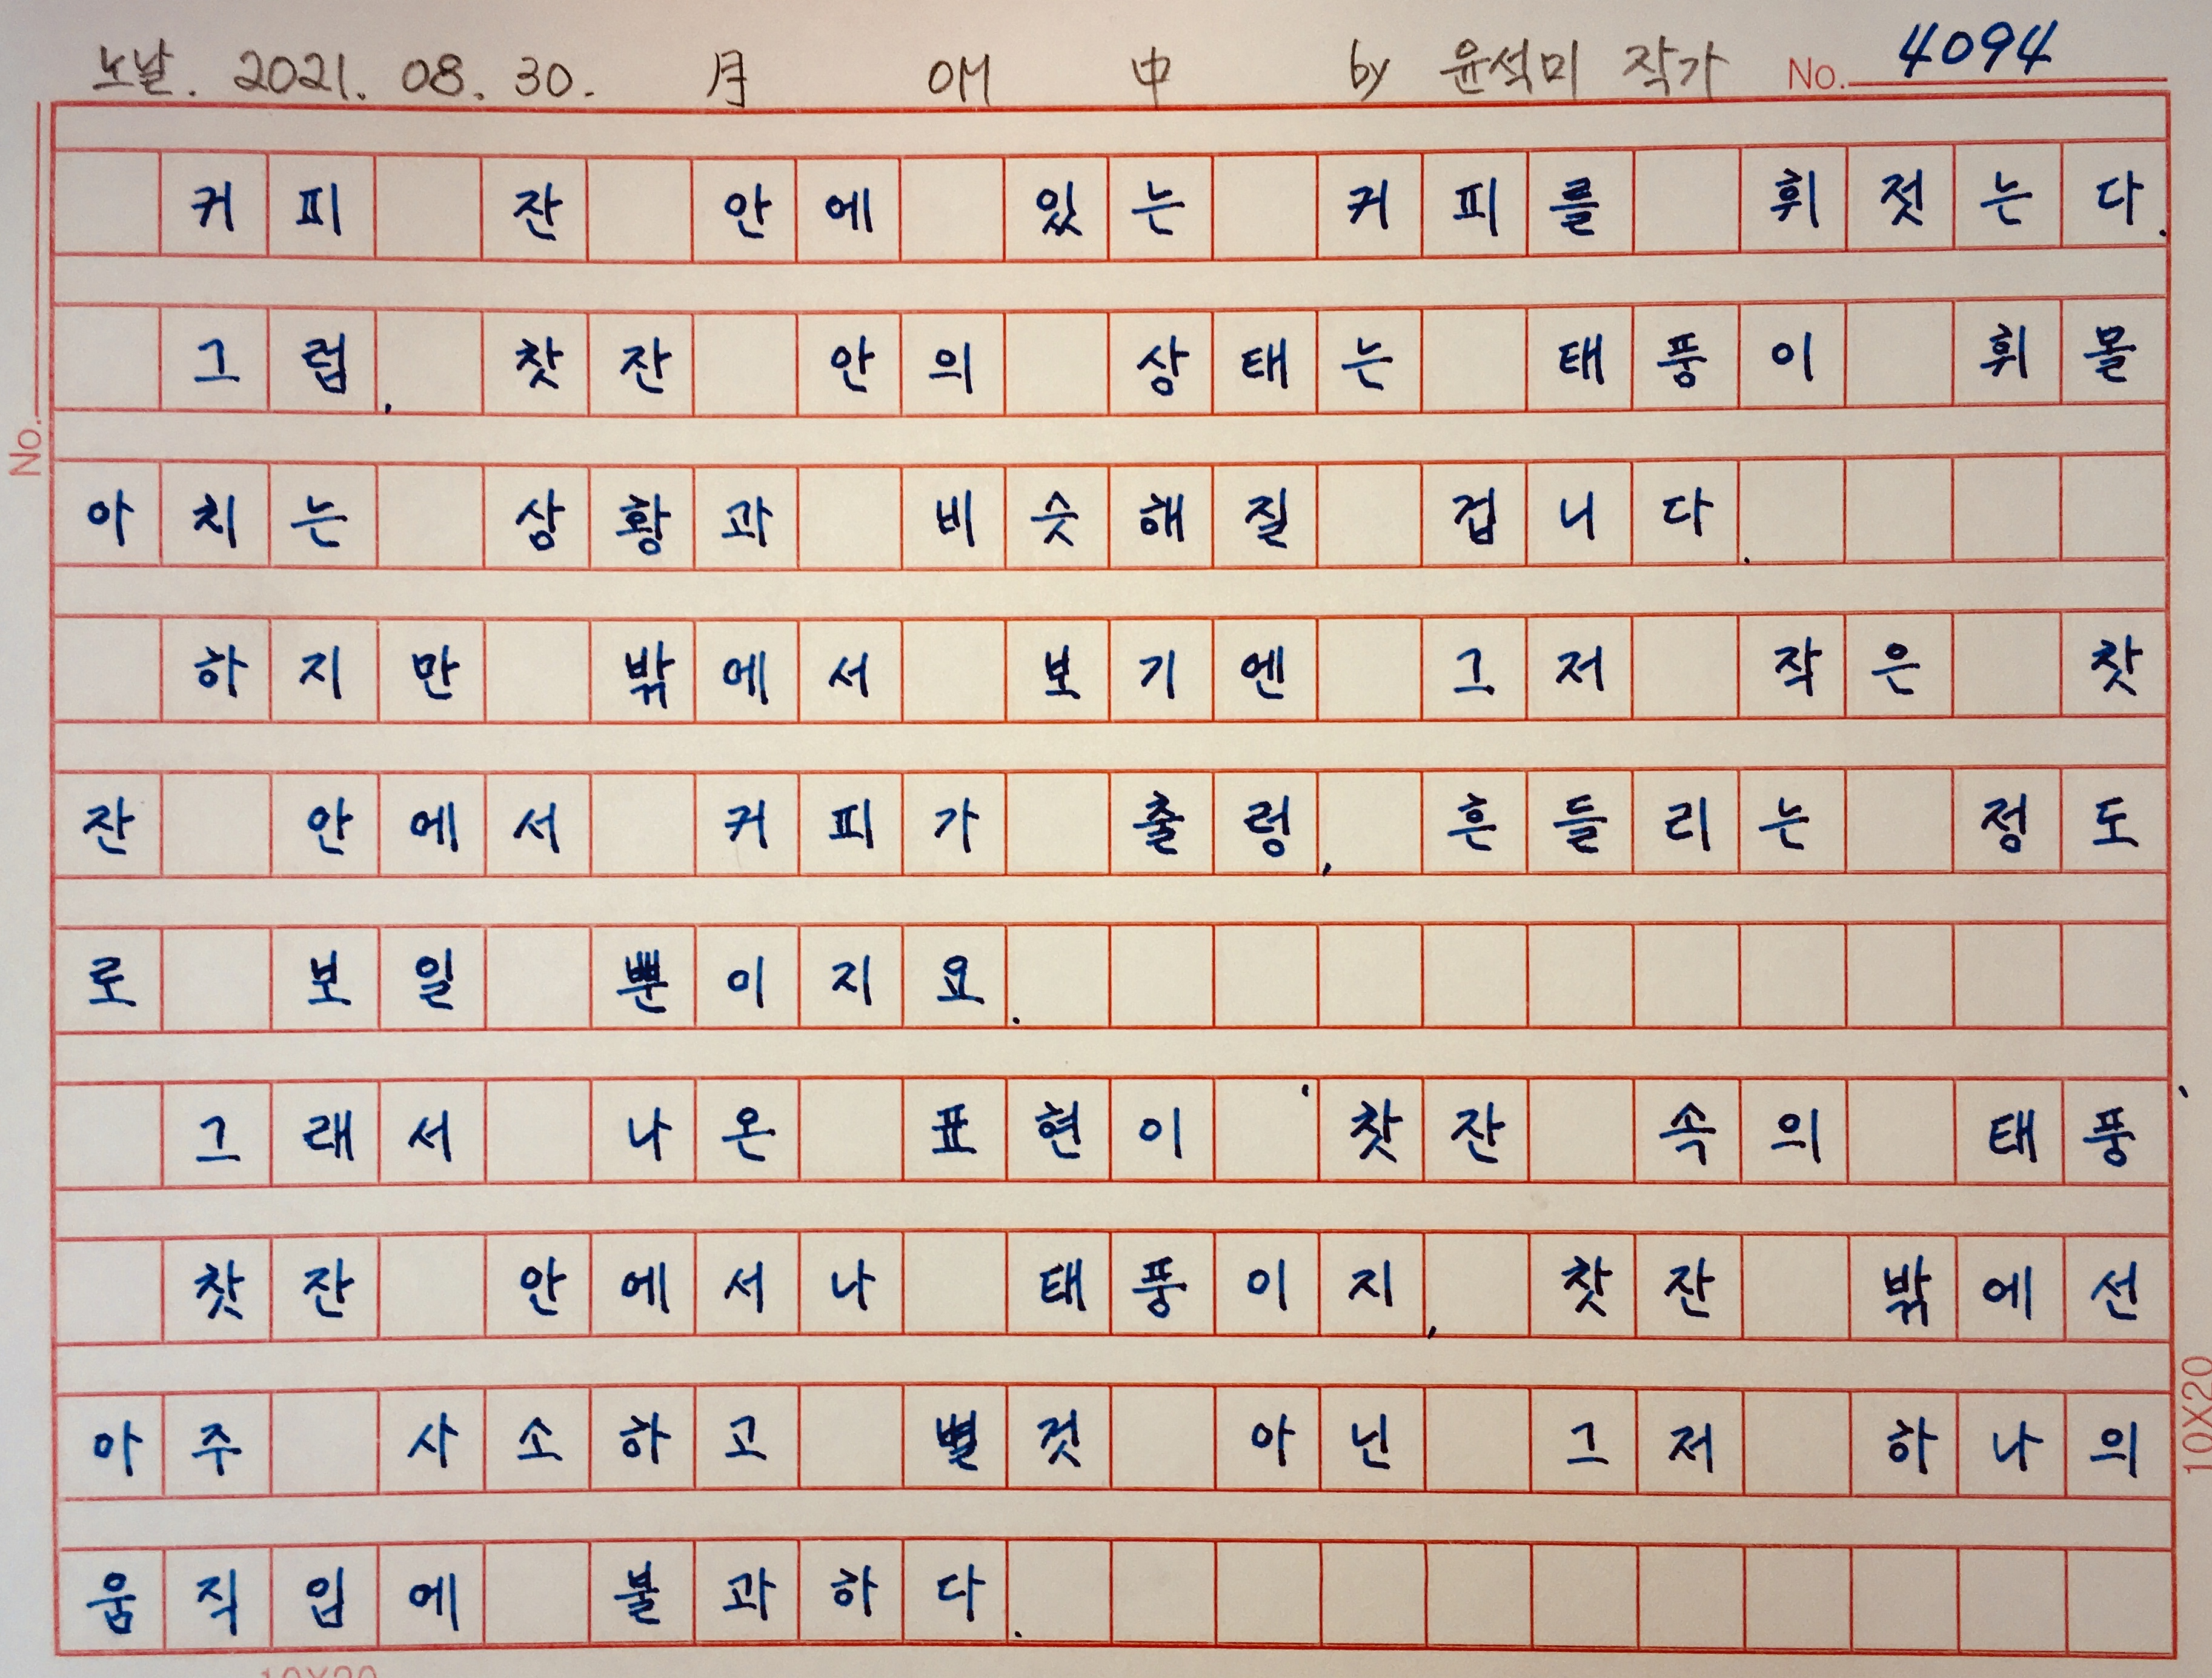 노날. 2021. 08. 30. 月 애 中 by 윤석미 작가 No. 4094
커피 잔 안에 있는 커피를 휘젓는다.
그럼, 찻잔 안의 상태는 태풍이 휘몰
아치는 상황과 비슷해질 겁니다.
하지만 밖에서 보기엔 그저 작은 찻
잔 안에서 커피가 출렁, 흔들리는 정도
로 보일 뿐이지요.
그래서 나온 표현이 '찻잔 속의 태풍'
찻잔 안에서나 태풍이지, 찻잔 밖에선
아주 사소하고 별것 아닌 그저 하나의
움직임에 불과하다.
No.
10X20
10X20